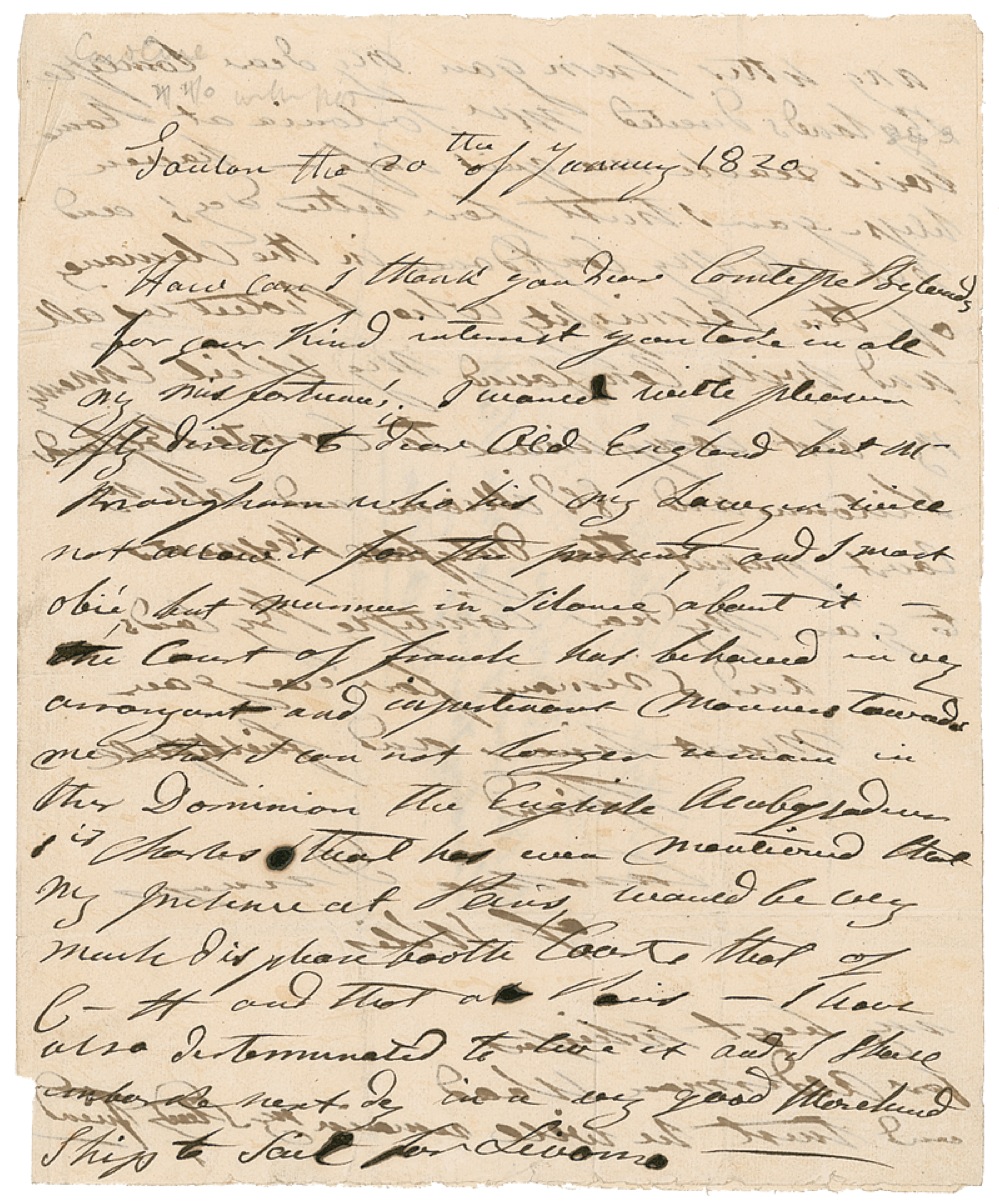 Toulon the 20 the of January 1820
How can I thank you Dear Comtesse Bylands
for your Kind interest you take in all
my misfortunes. I woued with pleasure
fly directly to Dear Old England but Mr
Brougham who his my Lawyer will
not allow it for the present, and I most
obié but in Silance about it —
the Court of france has behaved in very
arrongant and impertinant Manners towards
me that I can not longer remain in
ther Dominion the English Ambassadeur
Sir Charles Stuart has even mentioned that
my presence at Paris, would be very
much displease booth Courts that of
C – H and that at Paris — I have
also determinated to live it and I shall
embarke next dy in a very good Merchand
Ship to Sail for Livorno